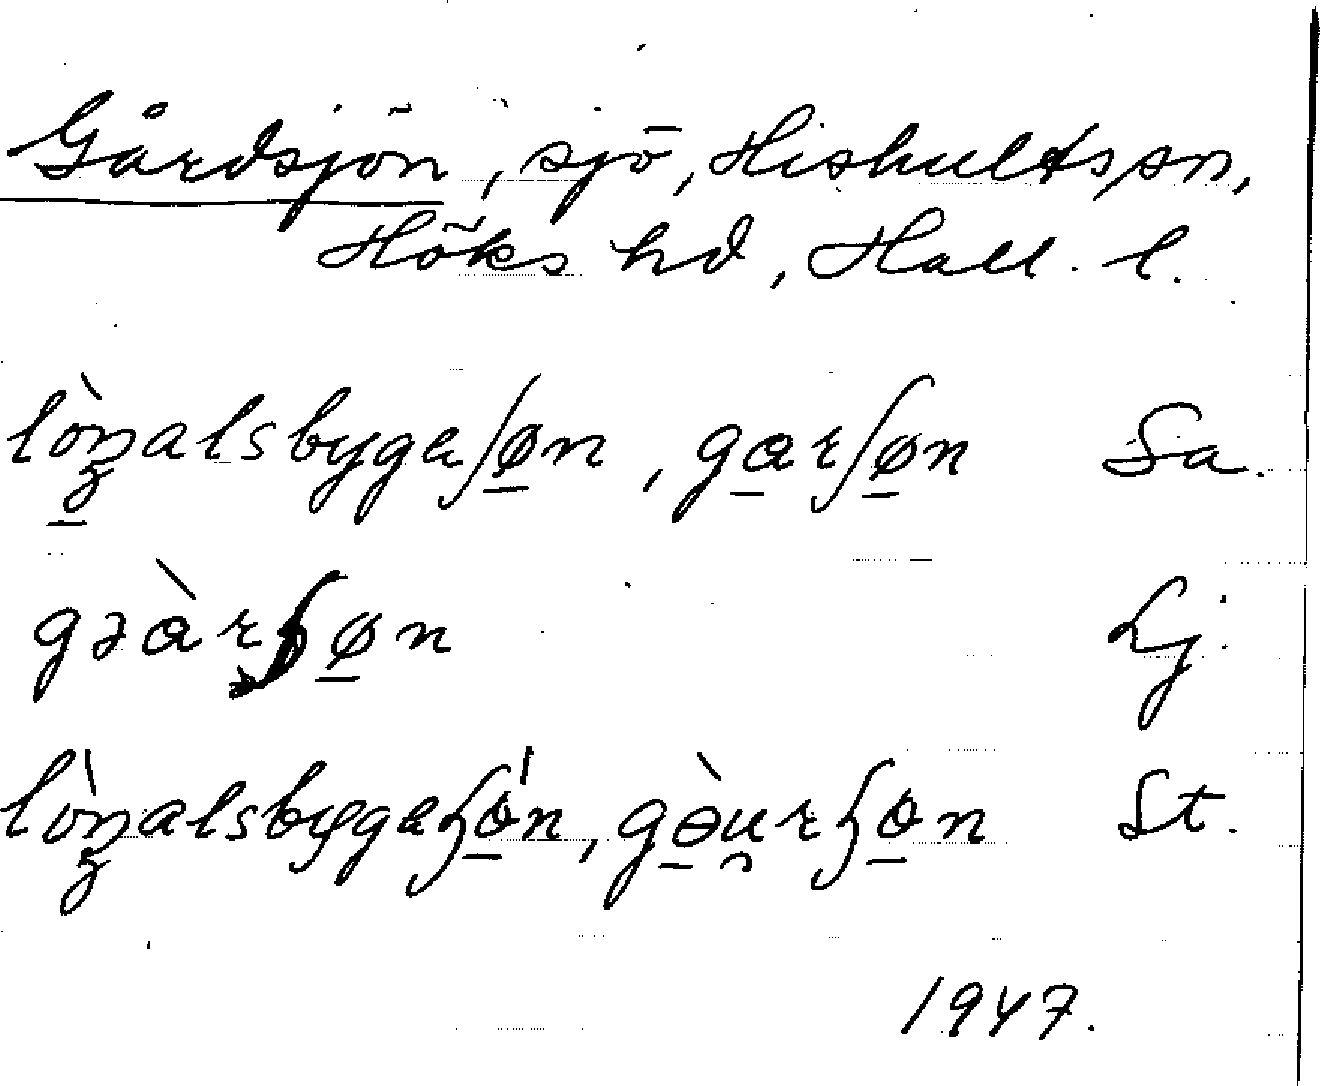 Gårdsjön, sjö, Hishults sn,
Höks hd, Hall. l.
lòŋalsbygaʃøn, garʃøn Sa.
gɔàrʃøn Lj.
lòŋalsbygeɧón, gɵ̀urɧɵn St.
1947.